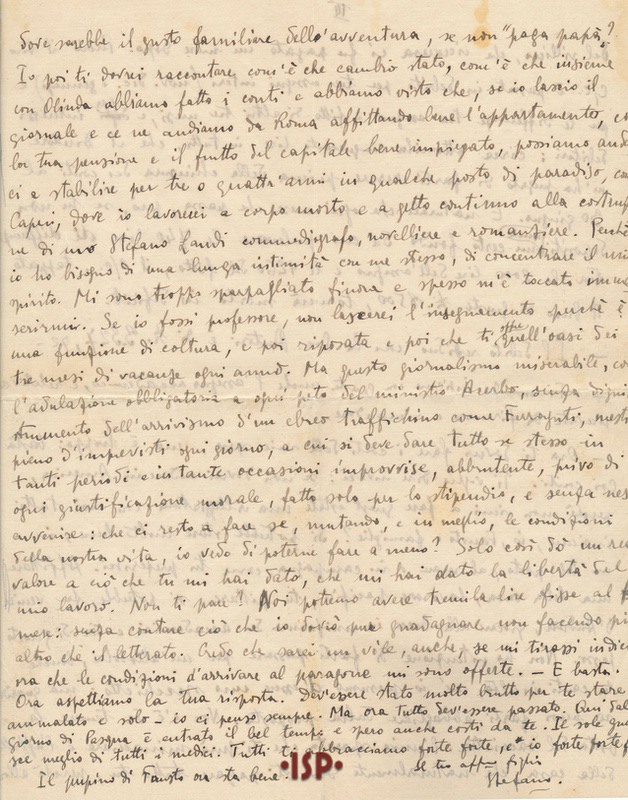 Dove sarebbe il gusto familiare dell'avventura, se non "paga papà"?
Io poi ti dovrei raccontare com'è che cambio stato, com'è che insieme
con Olinda abbiamo fatto i conti e abbiamo visto che, se io lascio il
giornale e ce ne andiamo da Roma affittando bene l'appartamento, co
la tua pensione e il frutto del capitale bene impiegato, possiamo anda
ci a stabilire per tre o quattr'anni in qualche posto di paradiso, com
Capri, dove io lavorerei a corpo morto e a getto continuo alla costruz
ne di uno Stefano Landi commediografo, novelliere e romanziere. Perchè
io ho bisogno di una lunga intimità con me stesso, di concentrare il mio
spirito. Mi sono troppo sparpagliato finora e spesso m'è toccato imme
serirmi. Se io fossi professore, non lascerei l'insegnamento perchè è
una funzione di coltura, e poi riposata, e poi che ti offre quell'oasi dei
tre mesi di vacanze ogni anno. Ma questo giornalismo miserabile, co
l'adulazione obbligatoria a ogni peto del ministro Acerbo, senza digni
strumento dell'arrivismo d'un ebreo traffichino come mesti
pieno d'imprevisti ogni giorno, a cui si deve dare tutto se stesso in
tanti periodi e in tante occasioni improvvise, abbrutente, privo di
ogni giustificazione morale, fatto solo per lo stipendio, e senza nes
avvenire: che ci resto a fare se, mutando, e in meglio, le condizioni
della nostra vita, io vedo di poterne fare a meno? Solo così dò un rea
valore a ciò che tu mi hai dato, che mi hai dato la libertà del
mio lavoro. Non ti pare? Noi potremo avere tremila lire fisse al
mese: senza contare ciò che io dovrò pur guadagnare non facendo più
altro che il letterato. Credo che sarei un vile, anche, se mi tirassi indiet
ora che le condizioni d'arrivare al paragone mi sono offerte. — E basta.
Ora aspettiamo la tua risposta. Dev'essere stato molto brutto per te stare
ammalato e solo – io ci penso sempre. Ma ora tutto dev'essere passato. Qui dal
giorno di Pasqua è entrato il bel tempo e spero anche costì da te. Il sole gua
sce meglio di tutti i medici. Tutti ti abbracciamo forte forte, e io forte forte
Il pupino di Fausto ora sta bene. Il tuo aff.mo figlio
Stefano.
·ISP·